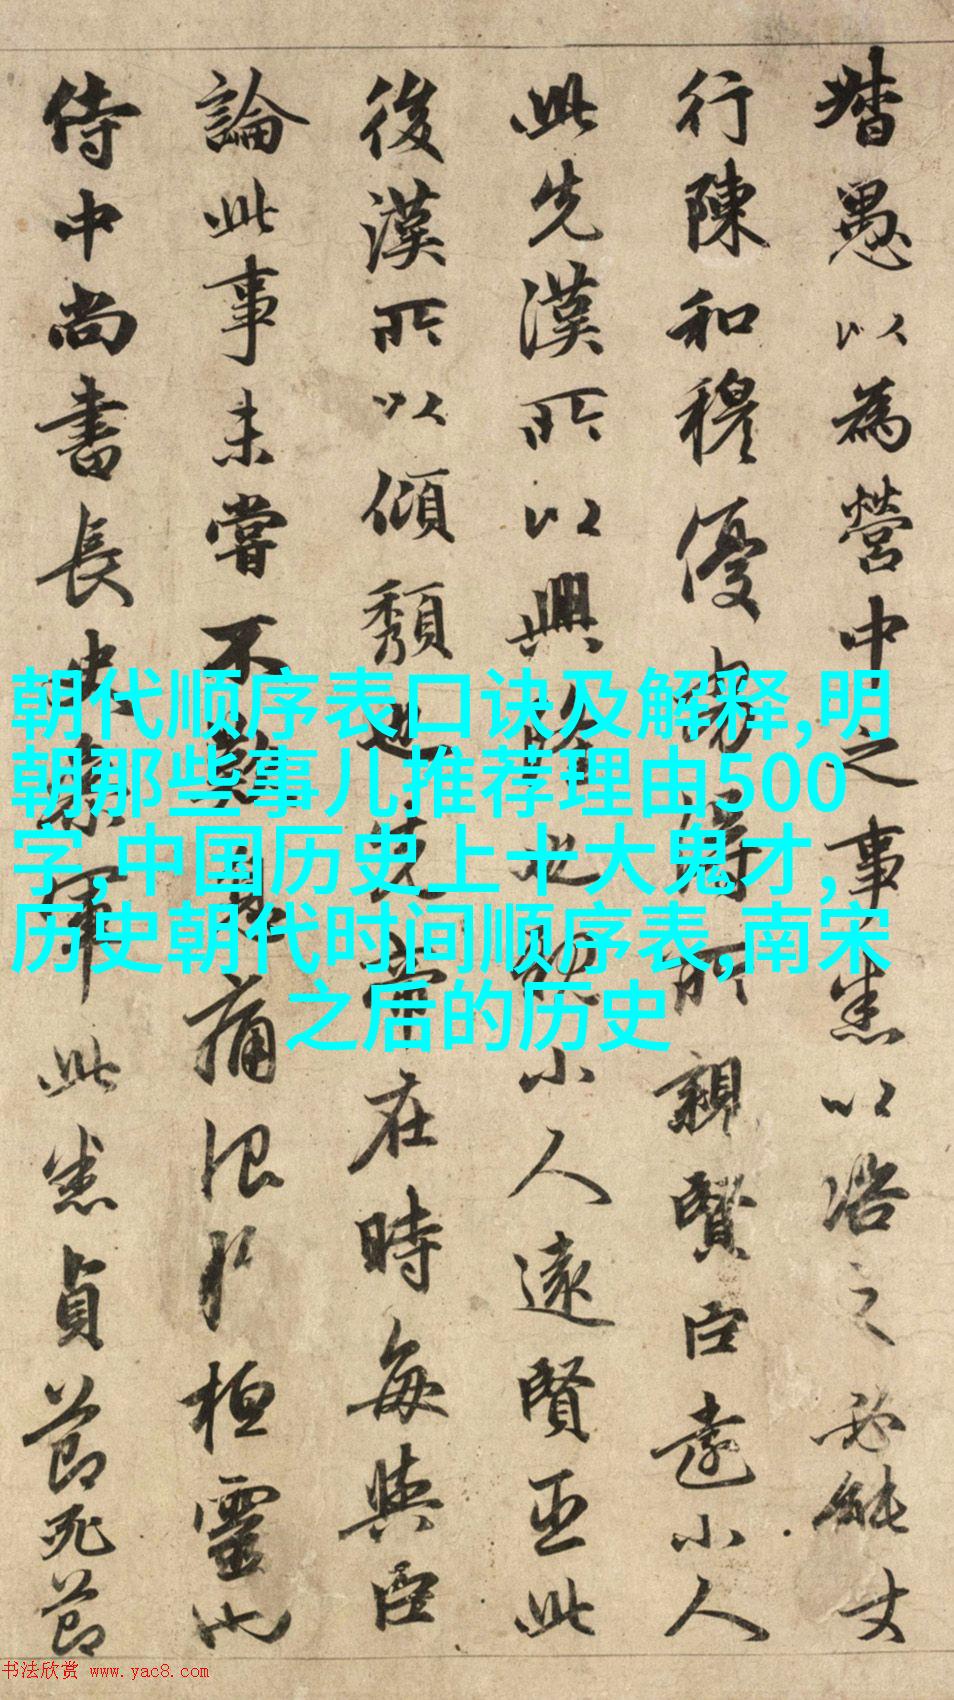 督愚以為營中之事悉以咨之必能使
行陳和穆優劣得所親賢臣遠小人
此先漢所以興隆也親小人遠賢臣此
後漢所以傾頹也先帝在時每與臣
論此事未嘗不歎息痛恨於桓靈也
侍中尚書長史參軍此悉貞節死節
朝代顺序表口诀及解释,明
朝那些事儿推荐理由500
字,中国历史上十大鬼才,
历史朝代时间顺序表,南宋
之后的历史
书法欣赏 www.yac8.com